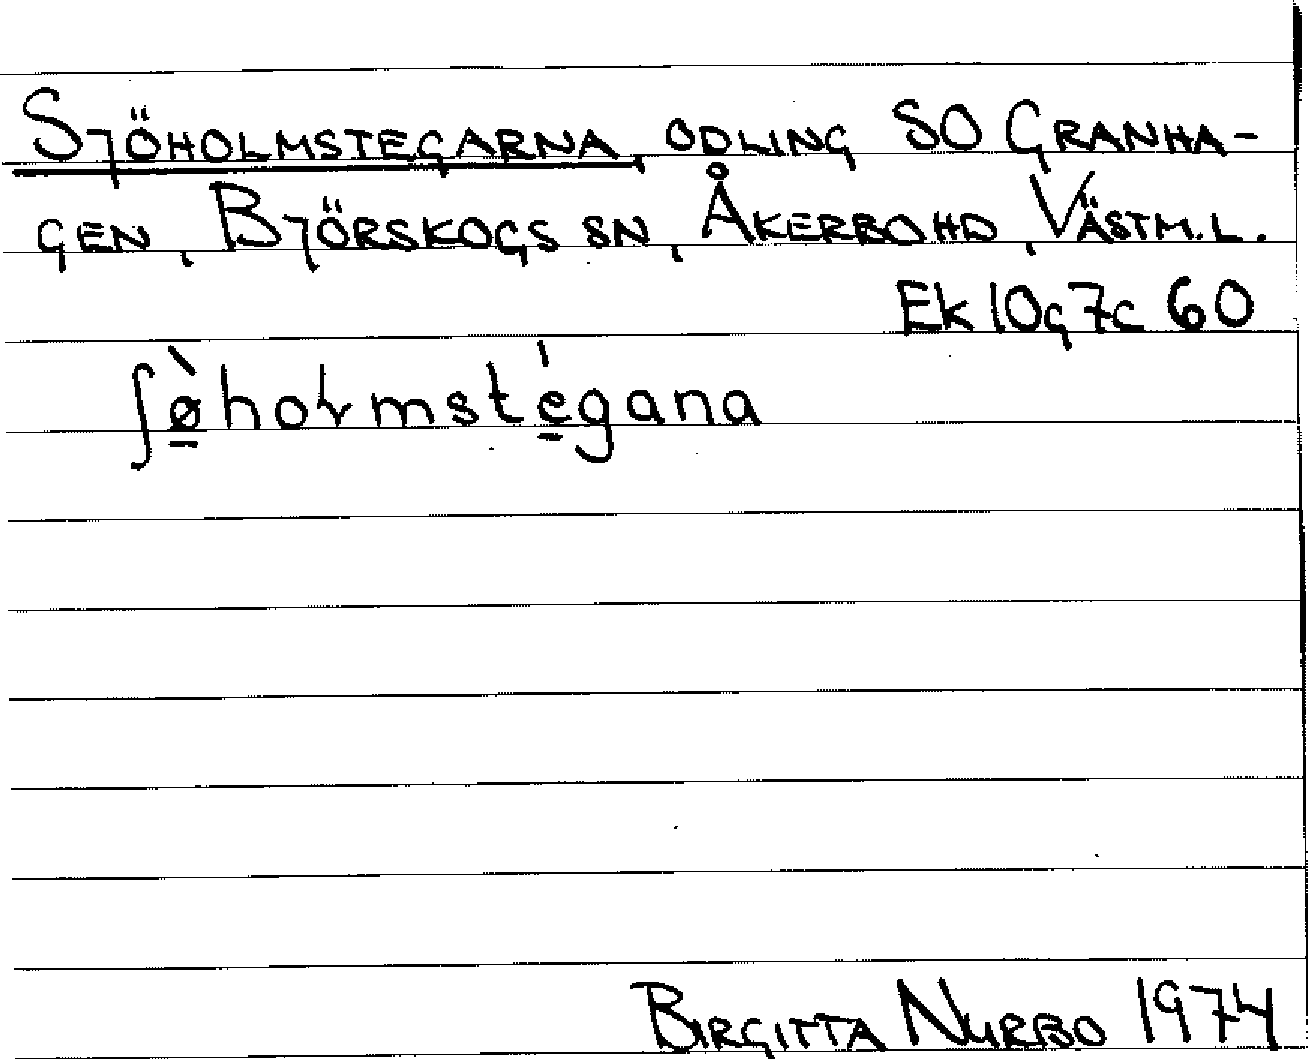 SJÖHOLMSTEGARNA, ODLING SO GRANHA-
GEN, BJÖRSKOGS SN, ÅKERBO HD, VÄSTM.L.
Ek 10g7c 60
ʃø̲̀hoɫmsté̲gana
BIRGITTA NYRBO 1974